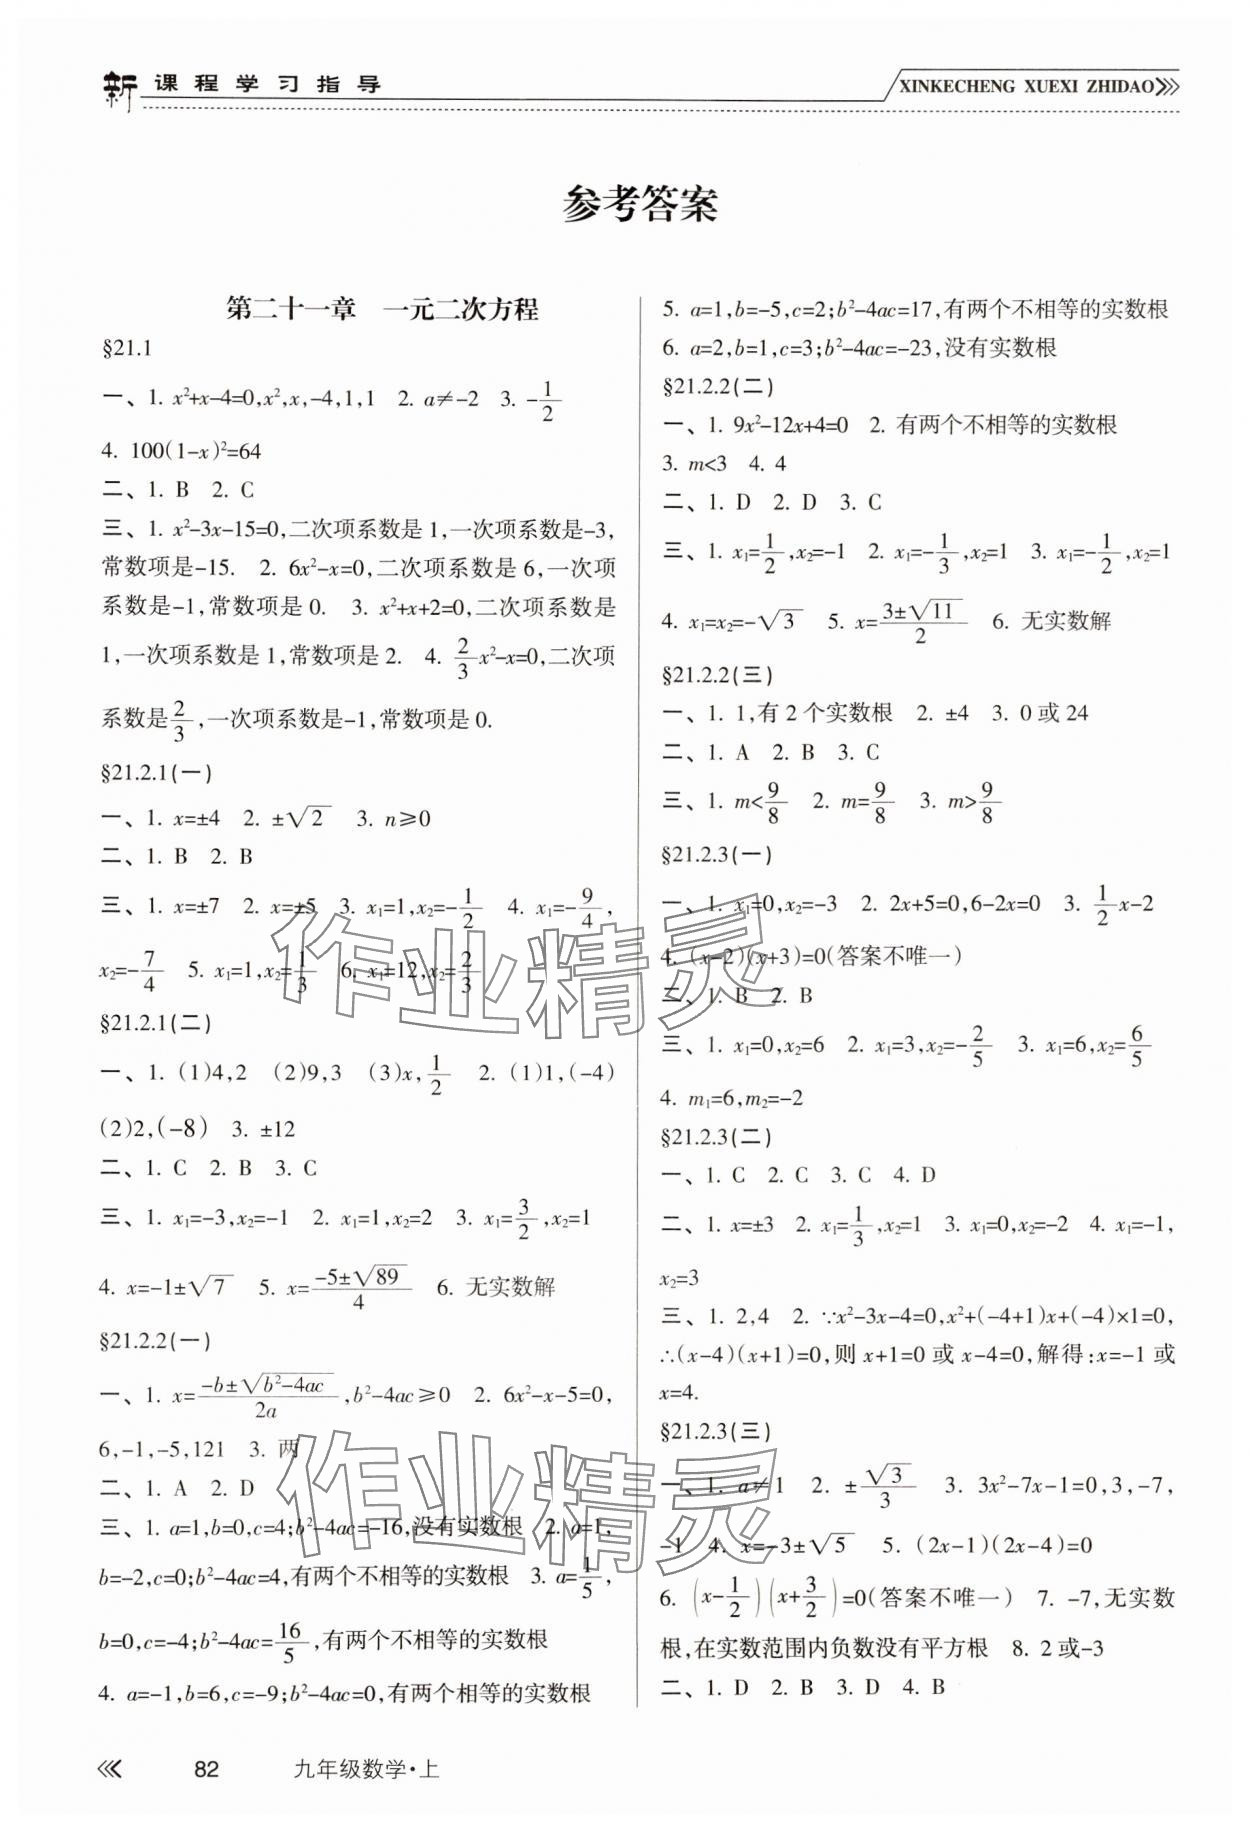 新 课程学习指导
XINKECHENG XUEXI ZHIDAO
参考答案
第二十一章　一元二次方程
§21.1
一、1. x²+x-4=0,x²,x,-4,1,1　2. a≠-2　3. -1/2
4. 100(1-x)²=64
二、1. B　2. C
三、1. x²-3x-15=0,二次项系数是1,一次项系数是-3,
常数项是-15.　2. 6x²-x=0,二次项系数是6,一次项
系数是-1,常数项是0.　3. x²+x+2=0,二次项系数是
1,一次项系数是1,常数项是2.　4. 2/3x²-x=0,二次项
系数是2/3,一次项系数是-1,常数项是0.
§21.2.1(一)
一、1. x=±4　2. ±√2　3. n≥0
二、1. B　2. B
三、1. x=±7　2. x=±5　3. x₁=1,x₂=-1/2　4. x₁=-9/4,
x₂=-7/4　5. x₁=1,x₂=1/3　6. x₁=12,x₂=2/3
§21.2.1(二)
一、1. (1)4,2　(2)9,3　(3)x,1/2　2. (1)1,(-4)
(2)2,(-8)　3. ±12
二、1. C　2. B　3. C
三、1. x₁=-3,x₂=-1　2. x₁=1,x₂=2　3. x₁=3/2,x₂=1
4. x=-1±√7　5. x=(-5±√89)/4　6. 无实数解
§21.2.2(一)
一、1. x=(-b±√(b²-4ac))/2a,b²-4ac≥0　2. 6x²-x-5=0,
6,-1,-5,121　3. 两
二、1. A　2. D
三、1. a=1,b=0,c=4;b²-4ac=-16,没有实数根　2. a=1,
b=-2,c=0;b²-4ac=4,有两个不相等的实数根　3. a=1/5,
b=0,c=-4;b²-4ac=16/5,有两个不相等的实数根
4. a=-1,b=6,c=-9;b²-4ac=0,有两个相等的实数根
5. a=1,b=-5,c=2;b²-4ac=17,有两个不相等的实数根
6. a=2,b=1,c=3;b²-4ac=-23,没有实数根
§21.2.2(二)
一、1. 9x²-12x+4=0　2. 有两个不相等的实数根
3. m<3　4. 4
二、1. D　2. D　3. C
三、1. x₁=1/2,x₂=-1　2. x₁=-1/3,x₂=1　3. x₁=-1/2,x₂=1
4. x₁=x₂=-√3　5. x=(3±√11)/2　6. 无实数解
§21.2.2(三)
一、1. 1,有2个实数根　2. ±4　3. 0或24
二、1. A　2. B　3. C
三、1. m<9/8　2. m=9/8　3. m>9/8
§21.2.3(一)
一、1. x₁=0,x₂=-3　2. 2x+5=0,6-2x=0　3. 1/2x-2
4. (x-2)(x+3)=0(答案不唯一)
二、1. B　2. B
三、1. x₁=0,x₂=6　2. x₁=3,x₂=-2/5　3. x₁=6,x₂=6/5
4. m₁=6,m₂=-2
§21.2.3(二)
一、1. C　2. C　3. C　4. D
二、1. x=±3　2. x₁=1/3,x₂=1　3. x₁=0,x₂=-2　4. x₁=-1,
x₂=3
三、1. 2,4　2. ∵x²-3x-4=0,x²+(-4+1)x+(-4)×1=0,
∴(x-4)(x+1)=0,则x+1=0或x-4=0,解得:x=-1或
x=4.
§21.2.3(三)
一、1. a≠1　2. ±√3/3　3. 3x²-7x-1=0,3,-7,
-1　4. x=-3±√5　5. (2x-1)(2x-4)=0
6. (x-1/2)(x+3/2)=0(答案不唯一)　7. -7,无实数
根,在实数范围内负数没有平方根　8. 2或-3
二、1. D　2. B　3. D　4. B
作业精灵
作业精灵
82　九年级数学·上